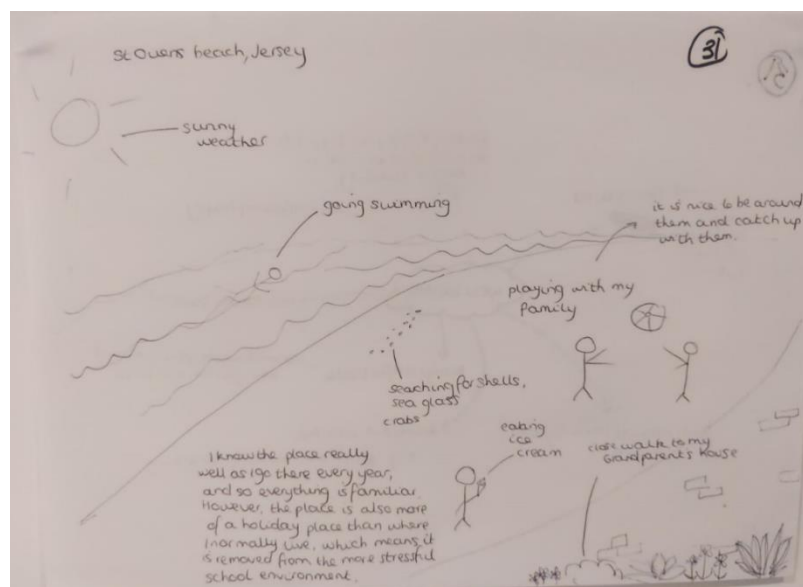 St Ouens beach, Jersey
31
sunny
weather
going swimming
it is nice to be around
them and catch up
with them.
playing with my
family
seaching for shells,
sea glass
crabs
eating
ice
cream
close walk to my
Grandparents House
I know the place really
well as i go there every year,
and so everything is familiar.
However, the place is also more
of a holiday place than where
I normally live, which means it
is removed from the more stressful
school environment.